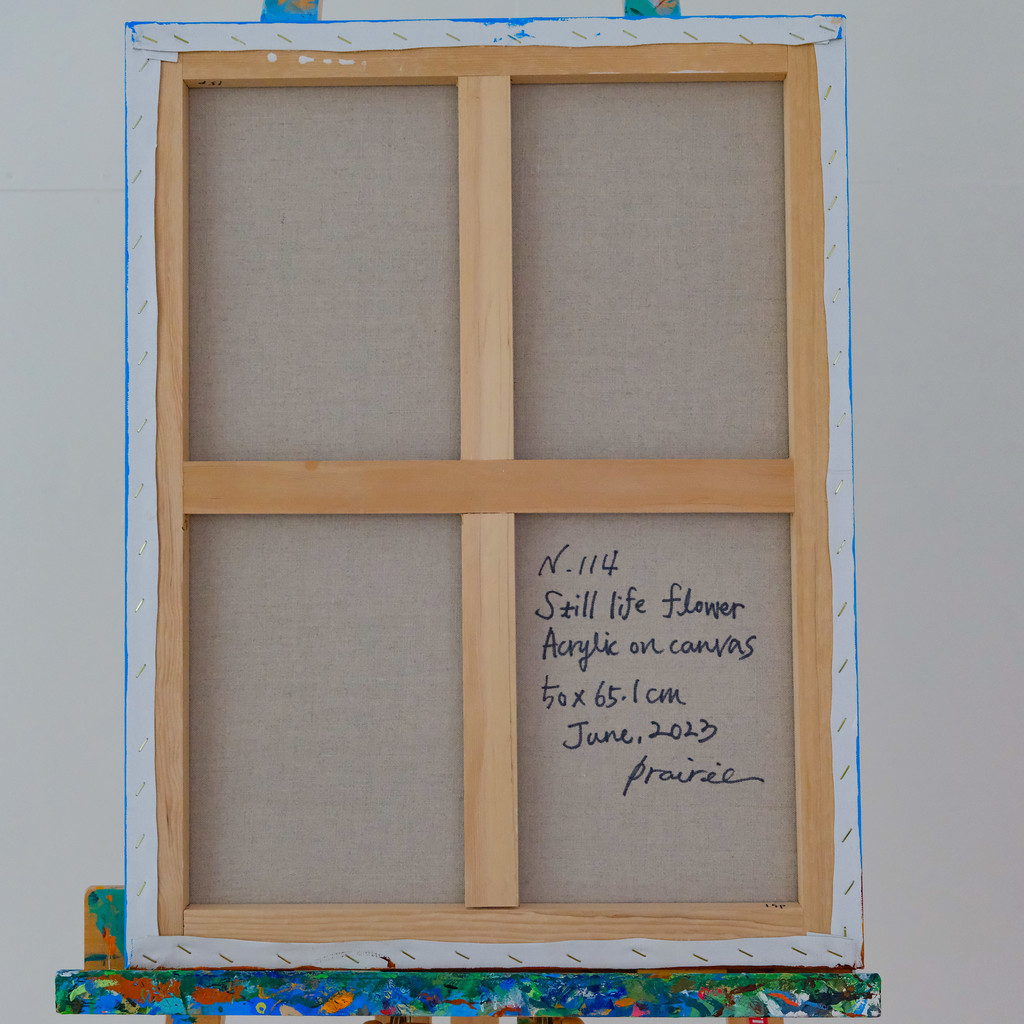 N.114
Still life flower
Acrylic on canvas
50x65.1cm
June, 2023
prairie